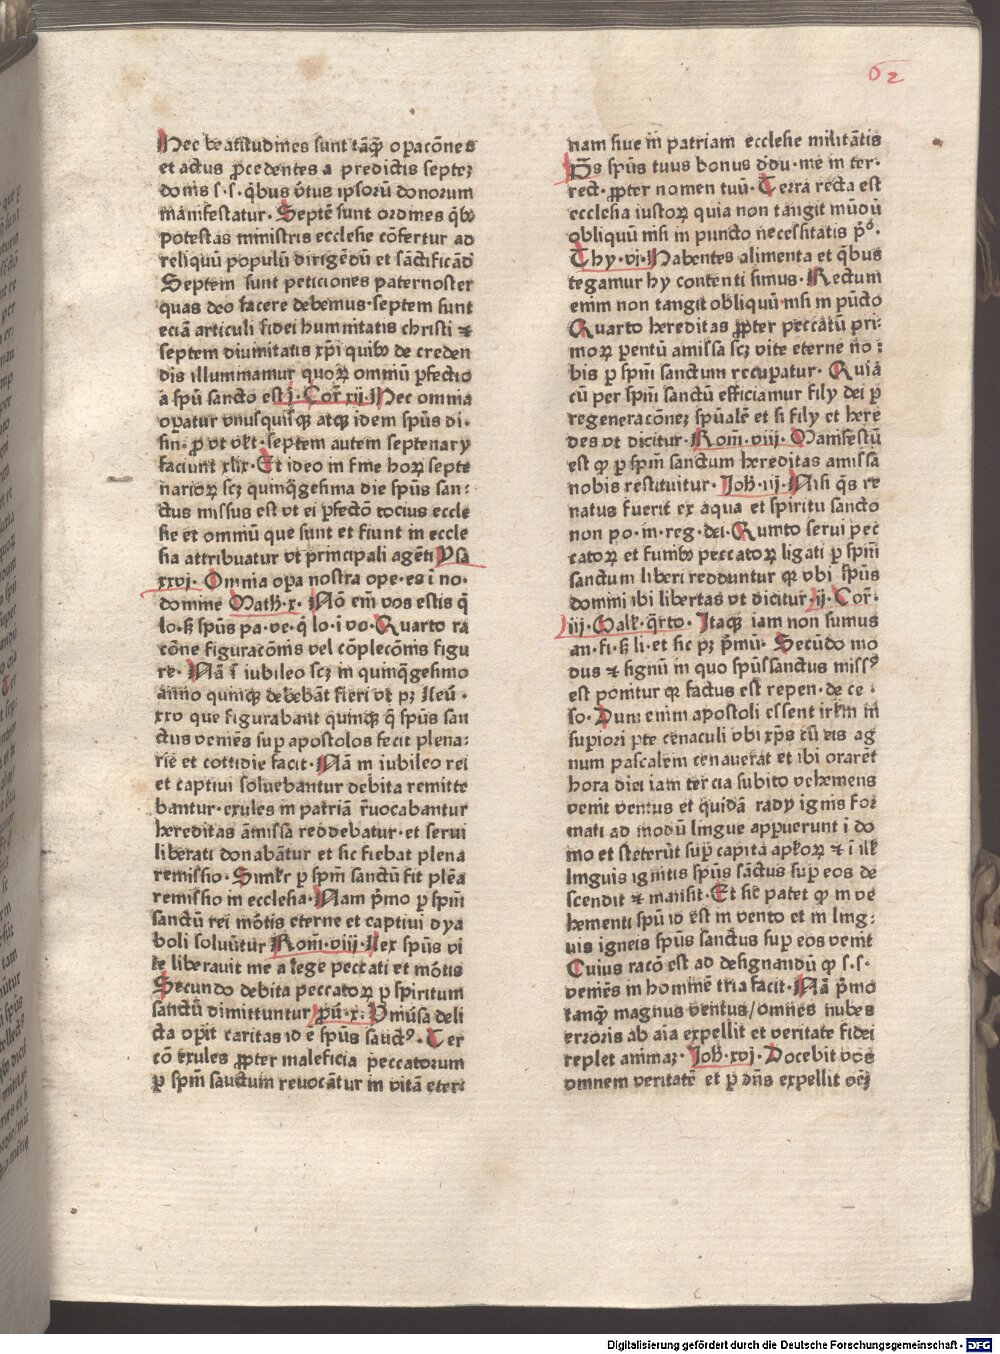 62
Hec beatitudines sunt tãq̃ opacõnes
et actus p̱cedentes a predictis septeȝ
donis s·s· q̃bus v̓tus ipsoꝝ donorum
manifestatur· Septẽ sunt ordines q̃bꝫ
potestas ministris ecclesie cõfertur ad
reliquũ populũ dirigẽdũ et sãctificãd̃
Septem sunt peticiones paternoster
quas deo facere debemus· septem sunt
eciã articuli fidei humnitatis christi ⁊
septem diuinitatis xp̃i quibꝫ de creden
dis illuminamur quoꝝ omniũ p̱fectio
a spũ sancto est j· Cor̃ xij· Hec omnia
op̱atur vnusquisq̃ atq̃ idem spũs di·
fin· ꝓ vt vl̓t· septem autem septenary
faciunt xlix· Et ideo in fine hoꝝ septe
narioꝝ scȝ quinq̃gesima die spũs san:
ctus missus est vt ei p̱fectõ tocius eccle
sie et omniũ que sunt et fiunt in eccle
sia attribuatur vt principali agẽti Ysa
xxvj· Omnia op̱a nostra ope·es ĩ no·
domine Math̓·x· Nõ em̃ vos estis q̃
lo·ß spũs pa·ve·q̃ lo·i vo· Quarto ra
cõne figuracõnis vel cõplecõnis figu
re· Nã ĩ iubileo scȝ in quinq̃gesimo
anno quinq̃ debebãt fieri vt pȝ lleũ·
xxv que figurabant quinq̃ q̃ spũs san
ctus veniẽs sup̱ apostolos fecit plena:
riẽ et cottidie facit· Nã in iubileo rei
et captiui soluebantur debita remitte
bantur· exules in patriã r̃uocabantur
hereditas ãmissa reddebatur· et serui
liberati donabãtur et sic fiebat plena
remissio· Simlr̃ p̱ spm̃ sanctũ fit plẽa
remissio in ecclesia· Nam p̃mo p̱ spm̃
sanctũ rei mõtis eterne et captiui dya
boli soluũtur Rom̃·viij· llex spũs vi
te liberauit me a lege peccati et mõtis
Secundo debita peccatoꝝ p̱ spiritum
sanctũ dimittuntur p̱ũ·x· Vniũsa deli
cta op̱it caritas id ẽ spũs sanctꝰ· Ter
cõ exules p̱pter maleficia peccatorum
p̱ spm̃ sanctum reuocãtur in vitã eter:
nam siue in patriam ecclesie militãtis
p̃s spũs tuus bonus d̓du·me in ter·
rect̓· p̱pter nomen tuũ· Terra recta est
ecclesia iustoꝝ quia non tangit mũdũ
obliquũ nisi in puncto necessitatis p̃ᵒ·
Thy·vj· Habentes alimenta et q̃bus
tegamur hy contenti simus· Rectum
enim non tangit obliquũ nisi in pũcto
Quarto hereditas p̱pter peccatũ pri:
moꝝ p̱entũ amissa scȝ vite eterne no:
bis p̱ spm̃ sanctum recup̱atur· Quia
cũ per spm̃ sanctũ efficiamur fily dei p̱
regeneracõneȝ spũalẽ et si fily et here
des vt dicitur· Rom̃·viij· Manifestũ
est qͦ p̱ spm̃ sanctum hereditas amissa
nobis restituitur· Joh̓·iij· Nisi q̃s re
natus fuerit ex aqua et spiritu sancto
non po·in·reg·dei· Quinto serui pec
catoꝝ et funibꝫ peccatoꝝ ligati p̱ spm̃
sanctum liberi redduntur qꝛ vbi spũs
domini ibi libertas vt dicitur ·ij· Cor̃·
iij· Galt· q̃rto· Itaq̃ iam non sumus
an·fi·ß li·et sic pȝ p̃mũ· Secũdo mo
dus ⁊ signũ in quo spũssanctus missꝰ
est ponitur qꝛ factus est repen·de ce:
lo· Dum enim apostoli essent irlm̃ in
sup̱iori p̱te cenaculi vbi xp̃s cũ eis ag
num pascalem cenauerat et ibi orarẽt
hora diei iam tercia subito vehemens
venit ventus et q̃uidã rady ignis for
mati ad modũ lingue app̱uerunt ĩ do
mo et steterũt sup̱ capita apl̓oꝝ ⁊ ĩ ill̓
linguis ignitis spũs sãctus sup̱ eos de
scendit ⁊ mansit· Et sic patet qͦ in ve
hementi spũ id est in vento et in ling:
uis igneis spũs sanctus sup̱ eos venit
Cuius racõ est ad designandũ qͦ s·s·
veniẽs in hominẽ tria facit· Nã p̃mo
tanq̃ magnus ventus/omnes nubes
erroris ab aĩa expellit et veritate fidei
replet animaȝ· Joh̓·xvj· Docebit vos
omnem veritatẽ et p̱ dñs expellit oẽȝ
Digitalisierung gefördert durch die Deutsche Forschungsgemeinschaft · DFG